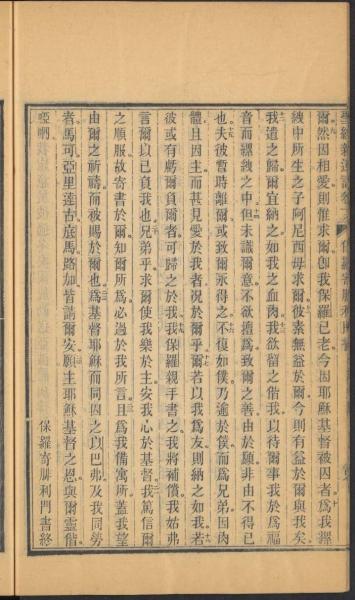 爾然因相愛則惟求爾卽我保羅已老今因耶穌基督被囚者爲我縲
紲中所生之子阿尼西母求爾彼素無益於爾今則有益於爾與我矣
我遣之歸爾宜納之如我之血肉我欲留之偕我以待爾事我於爲福
音而縲紲之中但未識爾意不欲擅爲致爾之善由於願非由不得已
也夫彼暫時離爾或致爾永得之不復如僕乃逾於僕而爲兄弟因肉
體且因主而甚見愛於我者况於爾乎爾若以我爲友則納之如我若
彼或有虧爾負爾者可歸之於我我保羅親手書之我將補償我始弗
言爾以己負我也兄弟乎求爾使我樂於主安我心於基督我篤信爾
之順服故寄書於爾知爾所爲必過於我所言且爲我備寓所蓋我望
由爾之祈禱而被賜於爾也爲基督耶穌而同囚之以巴弗及我同勞
者馬可亞里達古底馬路加皆請爾安願主耶穌基督之恩與爾靈偕
保羅寄腓利門書終